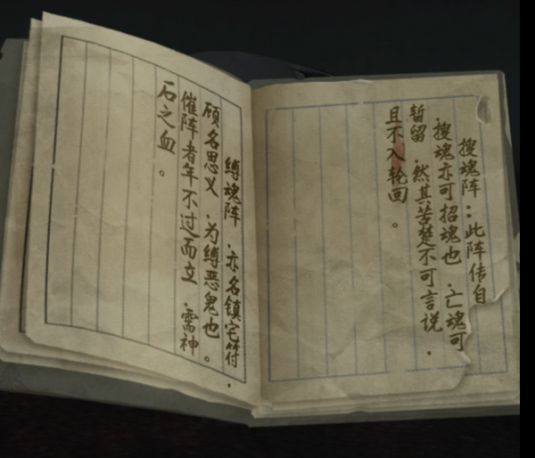 搜魂阵：此阵传自
搜魂亦可招魂也．亡魂可
暂留．然其苦楚不可言说．
且不入轮回。
缚魂阵．亦名镇宅符．
顾名思义．为缚恶鬼也。
催阵者年不过而立．需神
石之血。